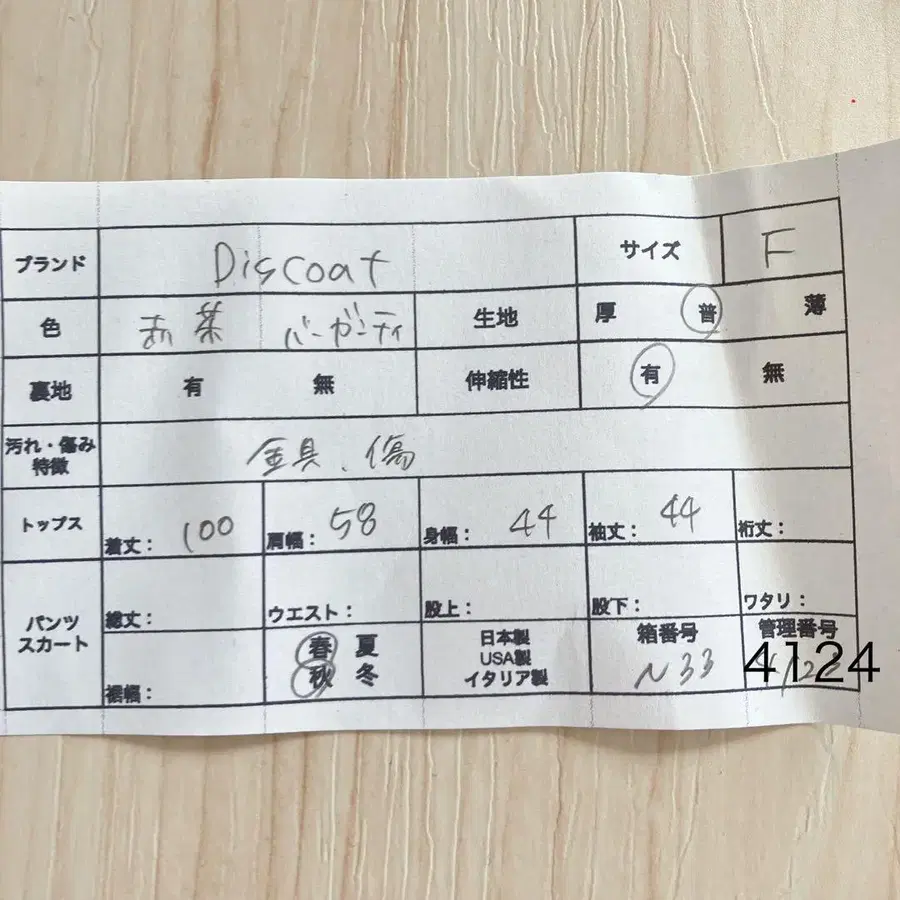 ブランド Discoat サイズ F
色 バーガンディ 生地 厚 普 薄
裏地 有 無 伸縮性 有 無
汚れ・傷み
特徴
金具、傷
トップス 着丈： 100 肩幅： 58 身幅： 44 袖丈： 44 裄丈：
パンツ
スカート
総丈： ウエスト： 股上： 股下： ワタリ：
裾幅：
春 夏
秋 冬
日本製
USA製
イタリア製
箱番号
N33
管理番号
4124